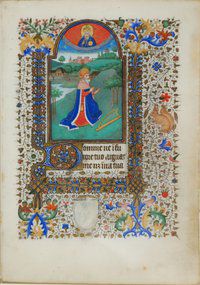 Domine ne i fu
rore tuo arguas
me in ira tua